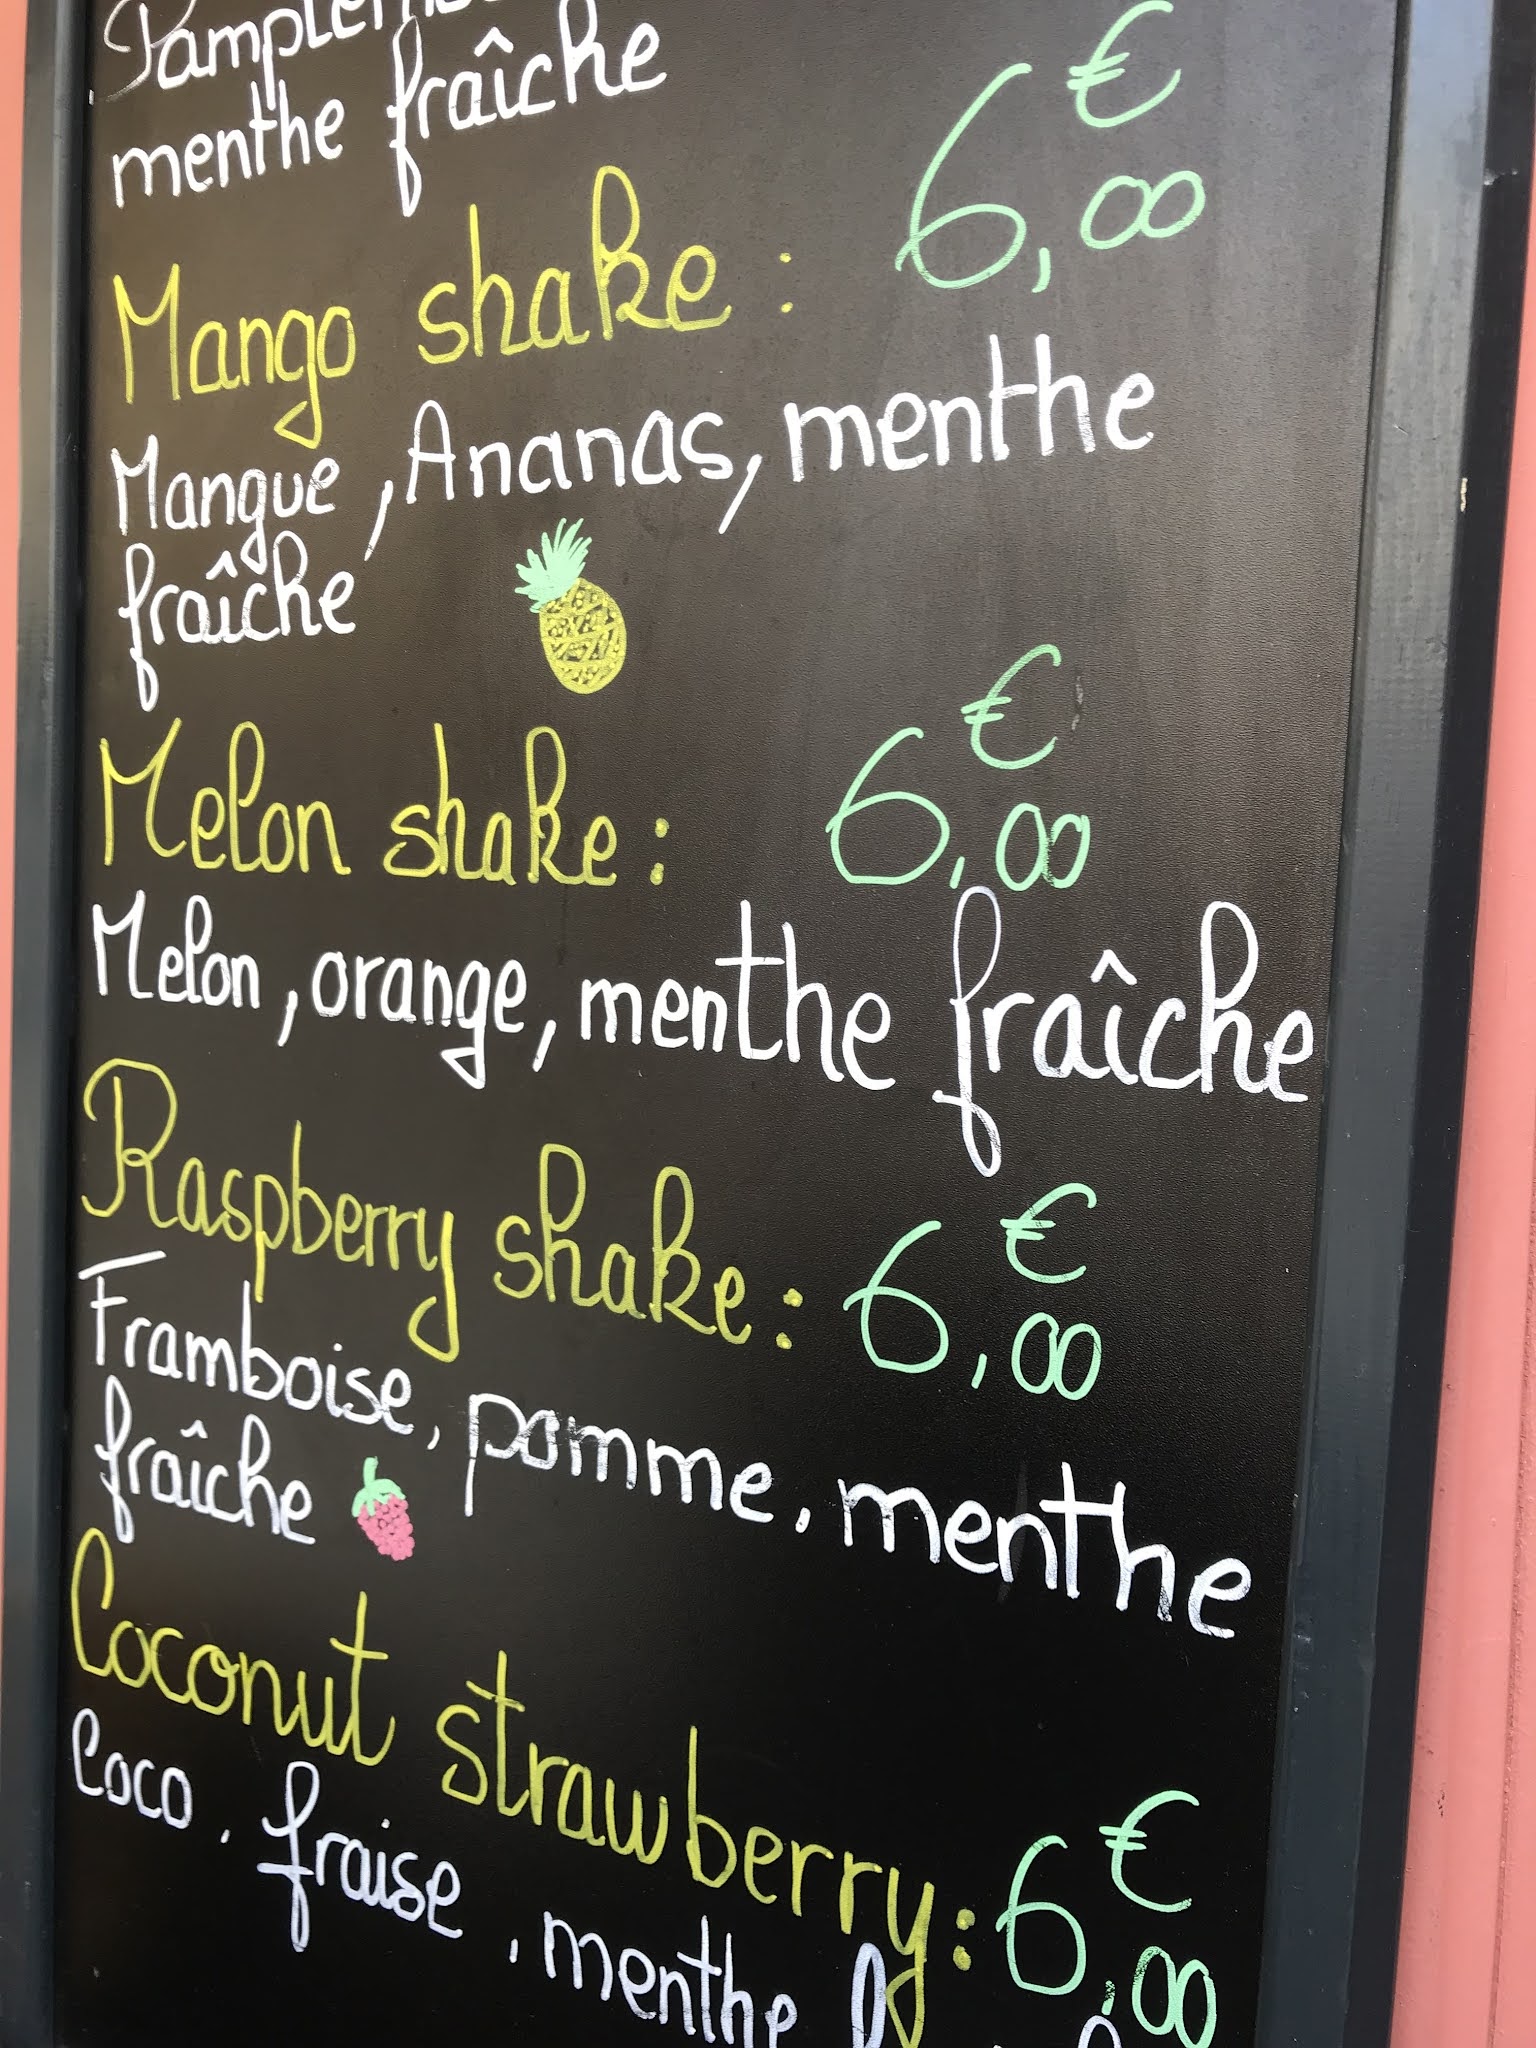 menthe fraîche
Mango shake : 6,00 €
Mangue, Ananas, menthe
fraîche
Melon shake : 6,00 €
Melon, orange, menthe fraîche
Raspberry shake : 6,00 €
Framboise, pomme, menthe
fraîche
Coconut strawberry : 6,00 €
Coco, fraise, menthe